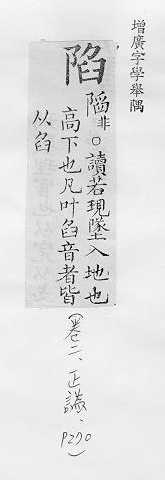 增廣字學舉隅
陷
䧟非○讀若現墜入地也
高下也凡叶臽音者皆
从臽
(卷二、正譌、P270)